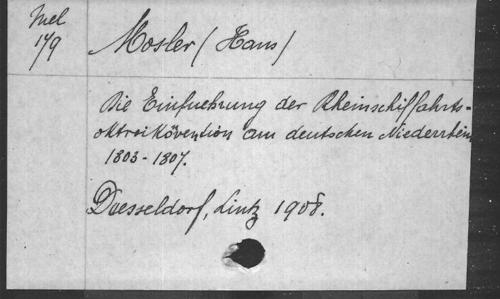 Mel
179
Mosler (Hans)
Die Einfuehrung der Rheinschiffahrts-
oktroikövention am deutschen Niederrhein
1803-1807.
Duesseldorf, Lintz 1908.